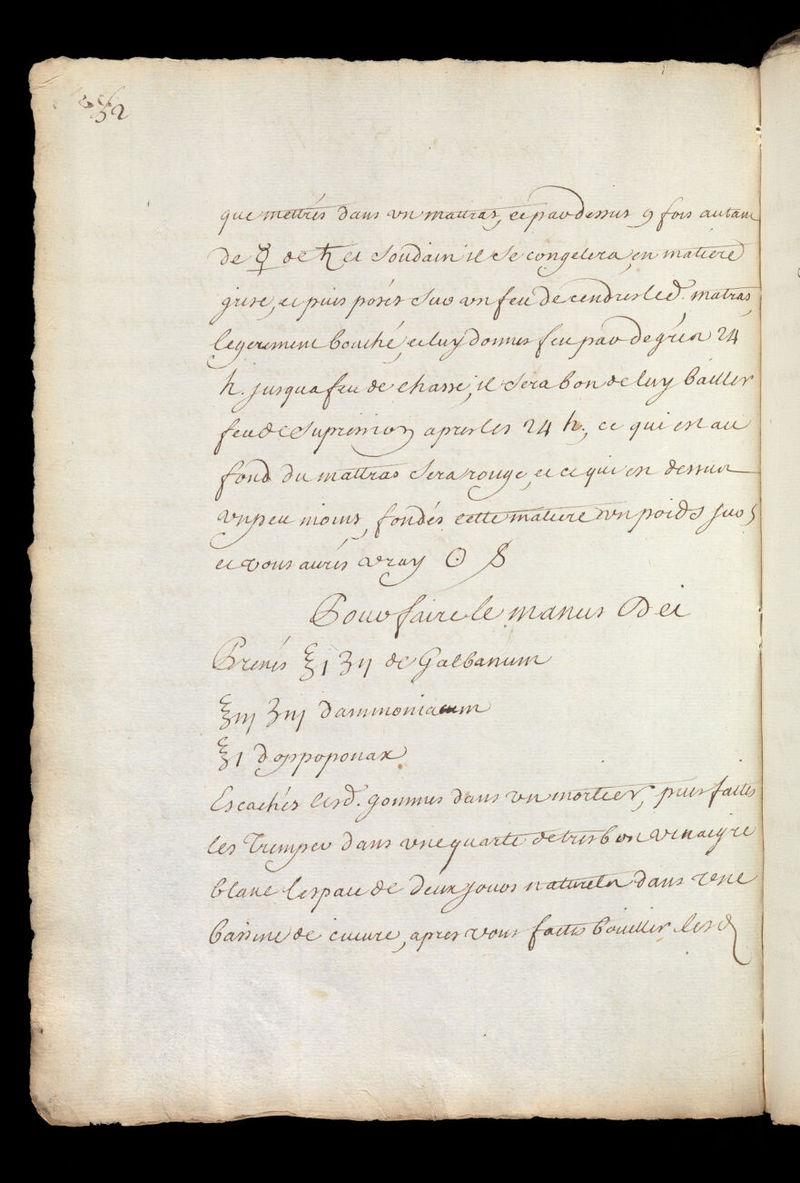 52
que mettrés dans vn mattras, et par dessus 9 fois autant
de ☿ de ♄ et soudain il se congelera en matiere
grise, et puis posés sur vn feu de cendres led. matras,
legerement bouché, et luy donnes feu par degréz 24
h. jusqua feu de chasse, il sera bon de luy bailler
feu de supression apres les 24 h., ce qui est au
fond du mattras sera rouge, et ce qui en dessus
vn peu moins, fondés cette matiere vn poids sur 5
et vous aurés vray ☉
Pour faire le manus Dei
Prenés ℥ j ʒ ij de Galbanum
℥ iij ʒ iij dammoniacum
℥ j doppoponax
Escachés lesd. gommes dans vn mortier, puis faites
les Tremper dans vne quarte de tres bon vinaigre
blanc lespace de deux jours naturels dans vne
bassine de cuiure, apres vous faites bouillir lesd